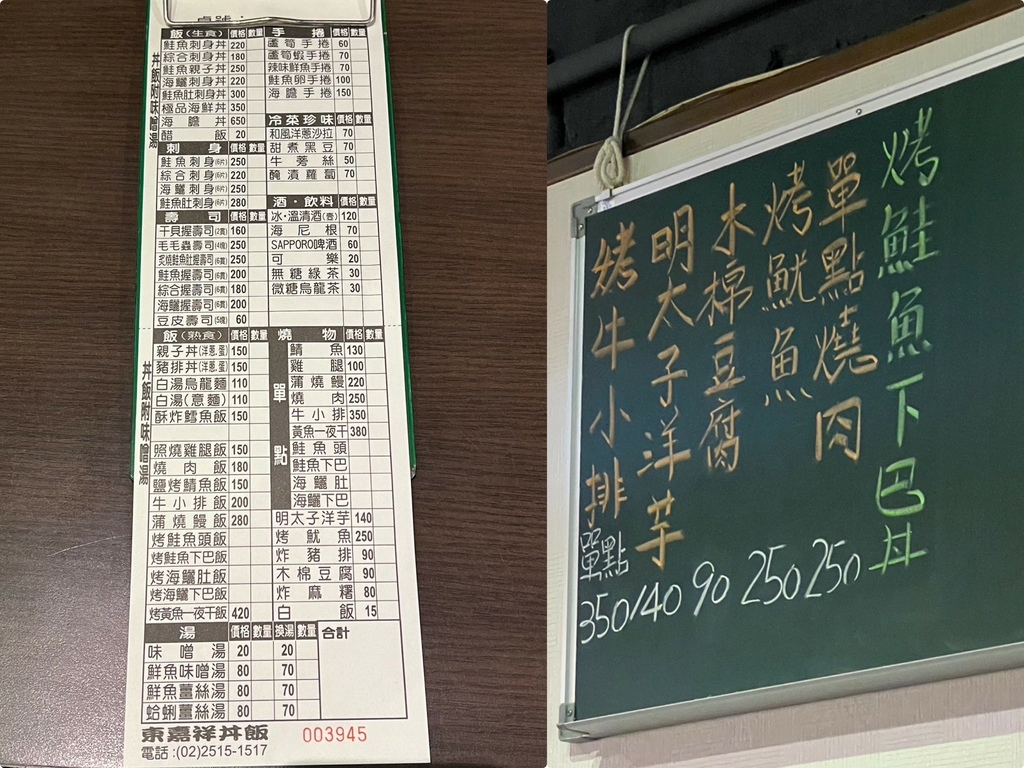 桌號：
丼飯附味噌湯
飯(生食) 價格 數量
鮭魚刺身丼 220
綜合刺身丼 180
鮭魚親子丼 250
海鱺刺身丼 220
鮭魚肚刺身丼 300
極品海鮮丼 350
海膽丼 650
醋飯 20
刺身 價格 數量
鮭魚刺身(6片) 250
綜合刺身(6片) 220
海鱺刺身(6片) 250
鮭魚肚刺身(6片) 280
壽司 價格 數量
干貝握壽司(2貫) 160
毛毛蟲壽司(4塊) 250
炙燒鮭魚肚握壽司(6貫) 250
鮭魚握壽司(6貫) 200
綜合握壽司(6貫) 180
海鱺握壽司(6貫) 200
豆皮壽司(5塊) 60
手捲 價格 數量
蘆筍手捲 60
蘆筍蝦手捲 70
辣味鮮魚手捲 70
鮭魚卵手捲 100
海膽手捲 150
冷菜珍味 價格 數量
和風洋蔥沙拉 70
甜煮黑豆 70
牛蒡絲 50
醃漬蘿蔔 70
酒・飲料 價格 數量
冰・溫清酒(壺) 120
海尼根 70
SAPPORO啤酒 60
可樂 20
無糖綠茶 30
微糖烏龍茶 30
丼飯附味噌湯
飯(熟食) 價格 數量
親子丼(洋蔥、蛋) 150
豬排丼(洋蔥、蛋) 150
白湯烏龍麵 110
白湯(意麵) 110
酥炸鱈魚飯 150
照燒雞腿飯 150
燒肉飯 180
鹽烤鯖魚飯 150
牛小排飯 200
蒲燒鰻飯 280
烤鮭魚頭飯
烤鮭魚下巴飯
烤海鱺肚飯
烤海鱺下巴飯
烤黃魚一夜干飯 420
燒物 價格 數量
單點
鯖魚 130
雞腿 100
蒲燒鰻 220
燒肉 250
牛小排 350
黃魚一夜干 380
鮭魚頭
鮭魚下巴
海鱺肚
海鱺下巴
明太子洋芋 140
烤魷魚 250
炸豬排 90
木棉豆腐 90
炸麻糬 80
白飯 15
湯 價格 數量 換湯 數量 合計
味噌湯 20 20
鮮魚味噌湯 80 70
鮮魚薑絲湯 80 70
蛤蜊薑絲湯 80 70
東嘉祥丼飯 003945
電話:(02)2515-1517
烤鮭魚下巴丼
單點燒肉 250
烤魷魚 250
木棉豆腐 90
明太子洋芋 140
烤牛小排單點 350